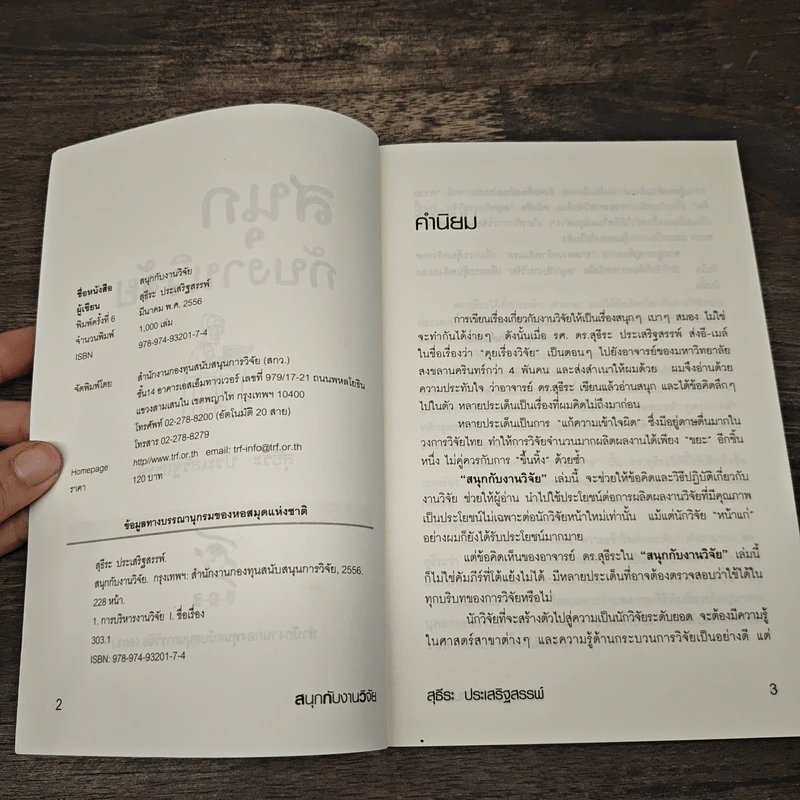 ชื่อหนังสือ สนุกกับงานวิจัย
ผู้เขียน สุธีระ ประเสริฐสรรพ์
พิมพ์ครั้งที่ 6 มีนาคม พ.ศ. 2556
จำนวนพิมพ์ 1,000 เล่ม
ISBN 978-974-93201-7-4
จัดพิมพ์โดย สำนักงานกองทุนสนับสนุนการวิจัย (สกว.)
ชั้น14 อาคารเอสเอ็มทาวเวอร์ เลขที่ 979/17-21 ถนนพหลโยธิน
แขวงสามเสนใน เขตพญาไท กรุงเทพฯ 10400
โทรศัพท์ 02-278-8200 (อัตโนมัติ 20 สาย)
โทรสาร 02-278-8279
Homepage http//www.trf.or.th email: trf-info@trf.or.th
ราคา 120 บาท
ข้อมูลทางบรรณานุกรมของหอสมุดแห่งชาติ
สุธีระ ประเสริฐสรรพ์.
สนุกกับงานวิจัย. กรุงเทพฯ: สำนักงานกองทุนสนับสนุนการวิจัย, 2556.
228 หน้า.
1. การบริหารงานวิจัย I. ชื่อเรื่อง
303.1
ISBN: 978-974-93201-7-4
2 สนุกกับงานวิจัย
คำนิยม
การเขียนเรื่องเกี่ยวกับงานวิจัยให้เป็นเรื่องสนุกๆ เบาๆ สมอง ไม่ใช่
จะทำกันได้ง่ายๆ ดังนั้นเมื่อ รศ. ดร.สุธีระ ประเสริฐสรรพ์ ส่งอี-เมล์
ในชื่อเรื่องว่า "คุยเรื่องวิจัย" เป็นตอนๆ ไปยังอาจารย์ของมหาวิทยาลัย
สงขลานครินทร์กว่า 4 พันคน และส่งสำเนาให้ผมด้วย ผมจึงอ่านด้วย
ความประทับใจ ว่าอาจารย์ ดร.สุธีระ เขียนแล้วอ่านสนุก และได้ข้อคิดลึกๆ
ไปในตัว หลายประเด็นเป็นเรื่องที่ผมคิดไม่ถึงมาก่อน
หลายประเด็นเป็นการ "แก้ความเข้าใจผิด" ซึ่งมีอยู่ดาษดื่นมากใน
วงการวิจัยไทย ทำให้การวิจัยจำนวนมากผลิตผลงานได้เพียง "ขยะ" อีกชิ้น
หนึ่ง ไม่คู่ควรกับการ "ขึ้นหิ้ง" ด้วยซ้ำ
"สนุกกับงานวิจัย" เล่มนี้ จะช่วยให้ข้อคิดและวิธีปฏิบัติเกี่ยวกับ
งานวิจัย ช่วยให้ผู้อ่าน นำไปใช้ประโยชน์ต่อการผลิตผลงานวิจัยที่มีคุณภาพ
เป็นประโยชน์ไม่เฉพาะต่อนักวิจัยหน้าใหม่เท่านั้น แม้แต่นักวิจัย "หน้าแก่"
อย่างผมก็ยังได้รับประโยชน์มากมาย
แต่ข้อคิดเห็นของอาจารย์ ดร.สุธีระใน "สนุกกับงานวิจัย" เล่มนี้
ก็ไม่ใช่คัมภีร์ที่โต้แย้งไม่ได้ มีหลายประเด็นที่อาจต้องตรวจสอบว่าใช้ได้ใน
ทุกบริบทของการวิจัยหรือไม่
นักวิจัยที่จะสร้างตัวไปสู่ความเป็นนักวิจัยระดับยอด จะต้องมีความรู้
ในศาสตร์สาขาต่างๆ และความรู้ด้านกระบวนการวิจัยเป็นอย่างดี แต่
สุธีระ ประเสริฐสรรพ์ 3